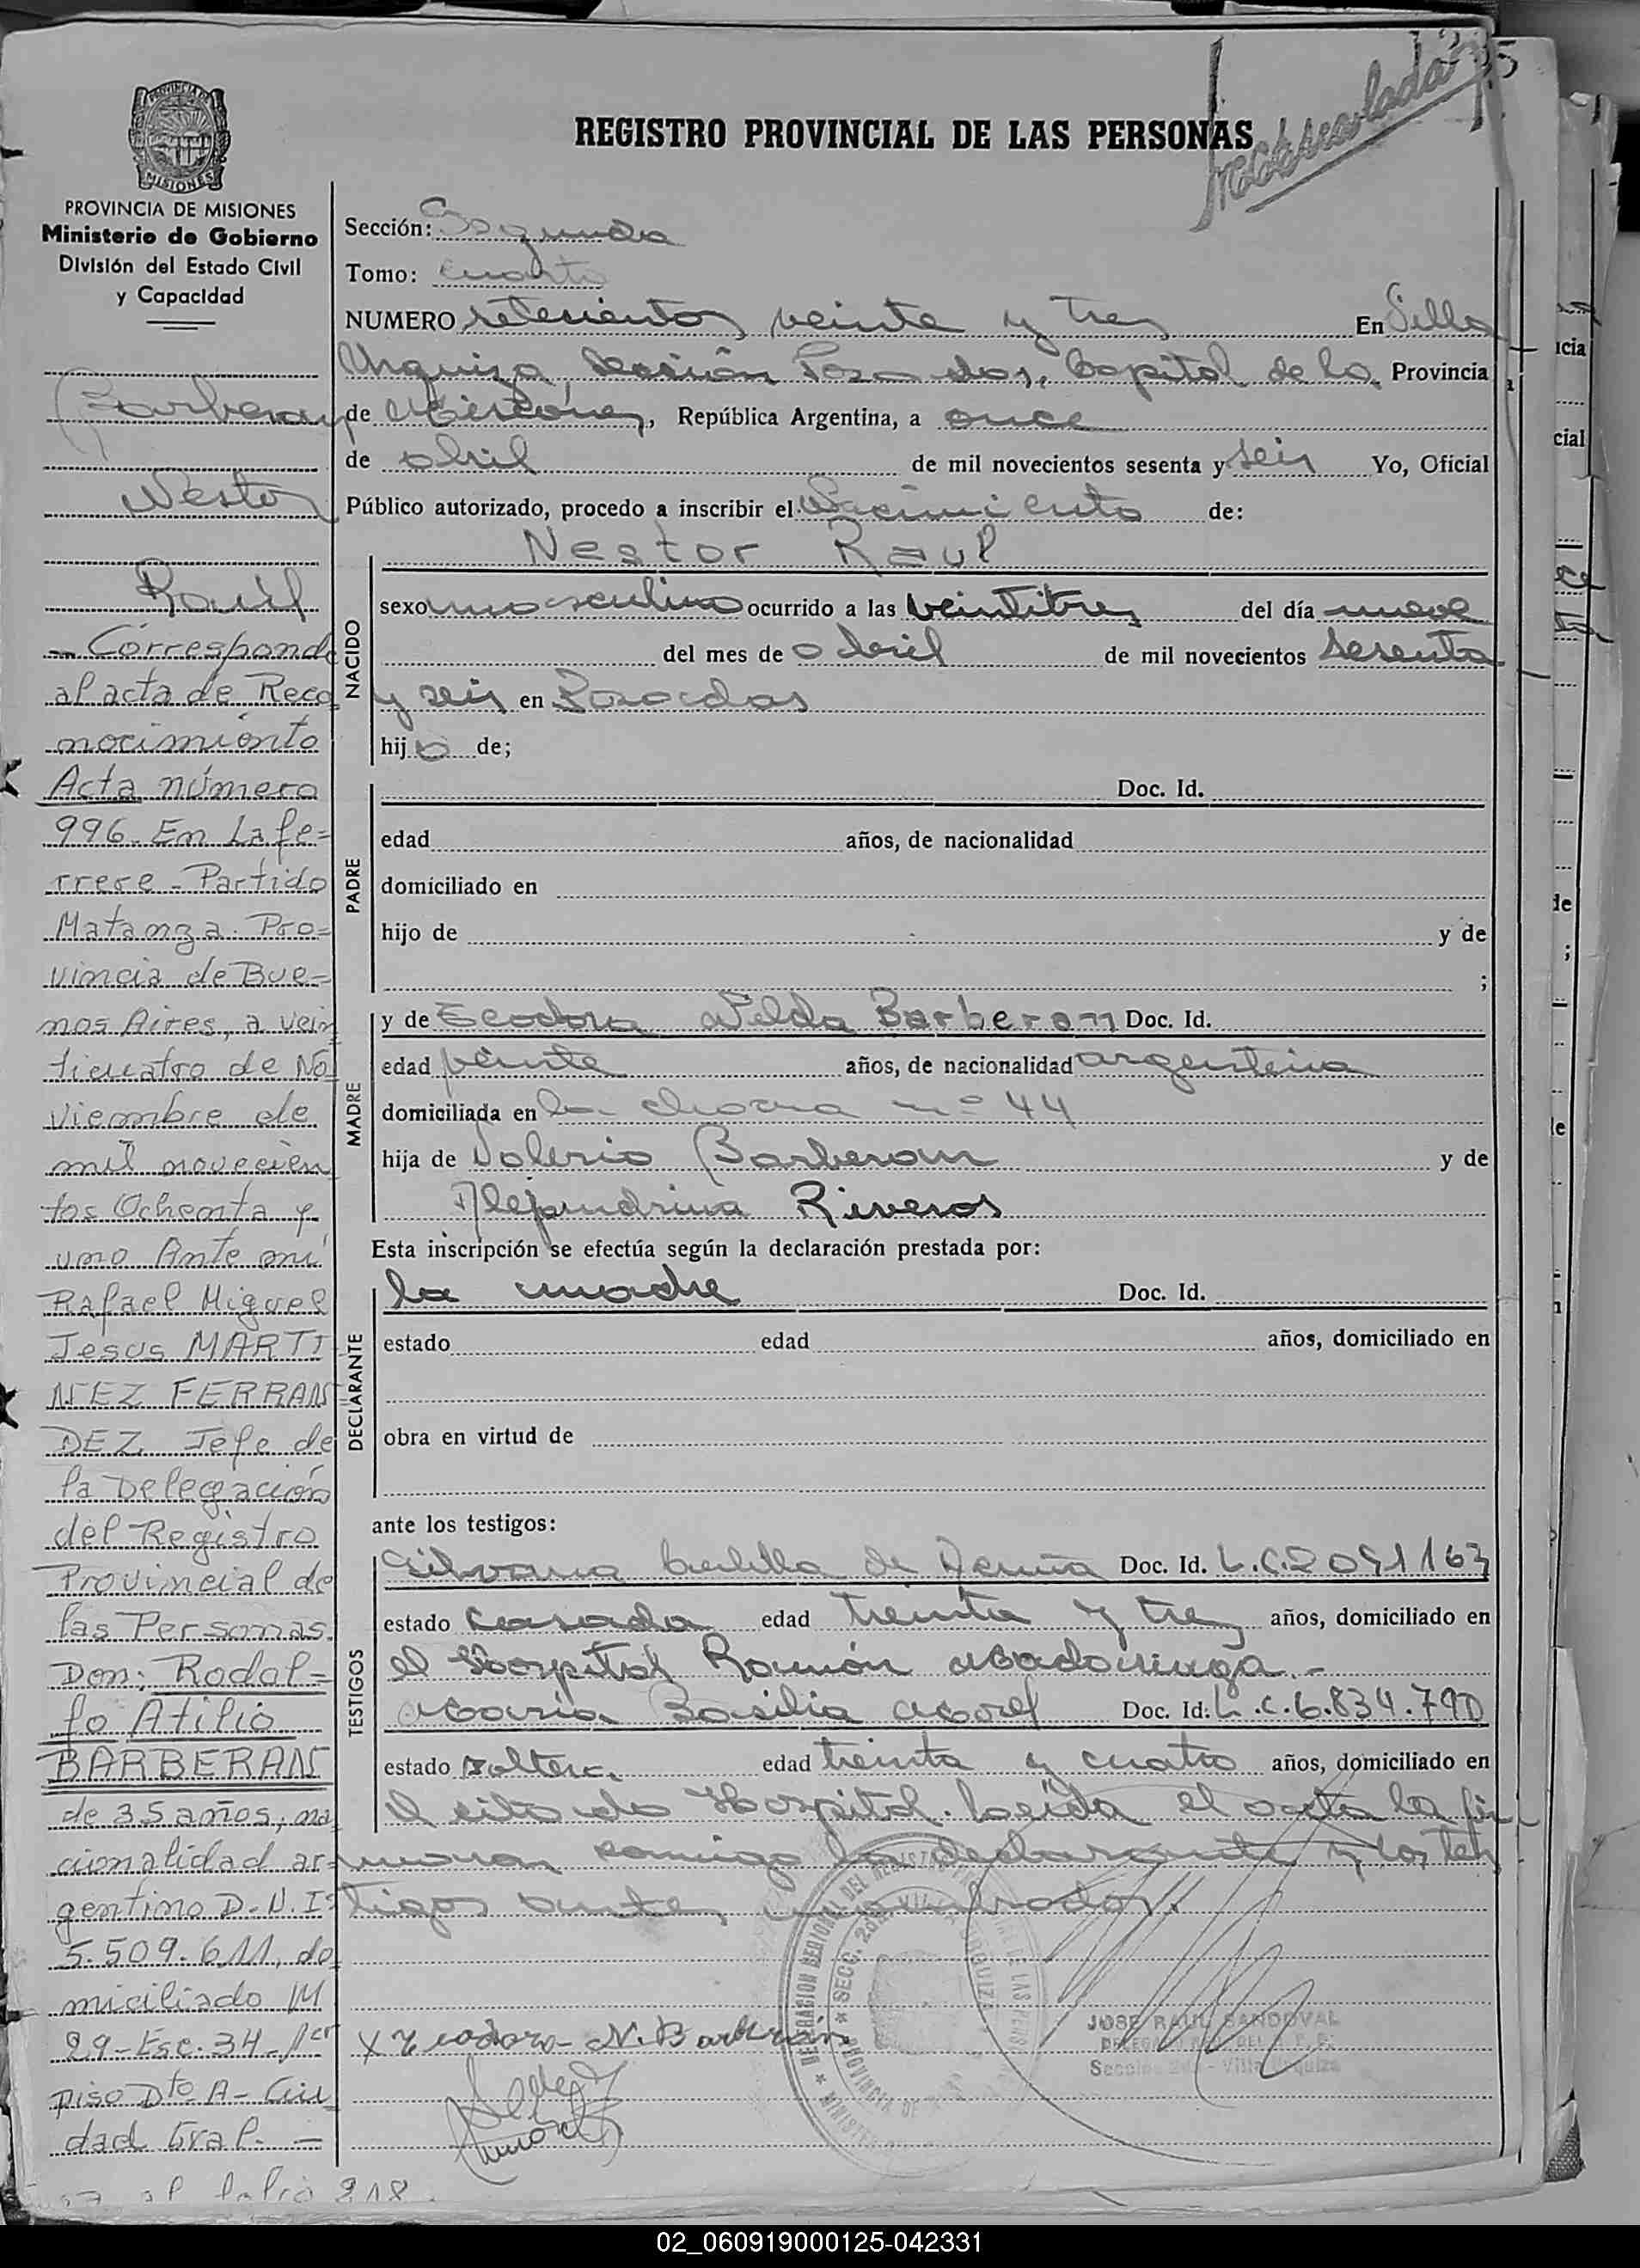 REGISTRO PROVINCIAL DE LAS PERSONAS
PROVINCIA DE MISIONES
Ministerio de Gobierno
División del Estado Civil
y Capacidad
Barberan
Nestor
Raúl
Sección: Segunda
Tomo: cuarto
NUMERO setecientos veinte y tres En Villa
Urquiza, Sección Posadas, Capital de la Provincia
de Misiones, República Argentina, a once
de abril de mil novecientos sesenta y seis Yo, Oficial
Público autorizado, procedo a inscribir el Nacimiento de:
NACIDO
Nestor Raul
sexo masculino ocurrido a las veintitres del día nueve
del mes de abril de mil novecientos sesenta
y seis en Posadas
hijo de;
PADRE
Doc. Id.
edad años, de nacionalidad
domiciliado en
hijo de y de
;
MADRE
y de Teodora Nelda Barberan Doc. Id.
edad veinte años, de nacionalidad argentina
domiciliada en la chacra nº 44
hija de Valerio Barberan y de
Alejandrina Riveros
Esta inscripción se efectúa según la declaración prestada por:
DECLARANTE
la madre Doc. Id.
estado edad años, domiciliado en
obra en virtud de
ante los testigos:
TESTIGOS
Silvana de Doc. Id. L.C.2091163
estado casada edad treinta y tres años, domiciliado en
el Hospital Ramón Madariaga.-
Maria Basilia Doc. Id: L.C.6.834.790
estado soltera edad treinta y cuatro años, domiciliado en
el citado Hospital. Leída el acta la fir
maron conmigo la declarante y los tes
tigos antes nombrados.
X Teodora N. Barberán
JOSE RAUL SANDOVAL
Villa Urquiza
- Corresponde
al acta de Reco
nocimiento
Acta número
996. En Lafe=
rrere - Partido
Matanza. Pro=
vincia de Bue=
nos Aires, a vein
ticuatro de No
viembre de
mil novecien
tos Ochenta y
uno Ante mí
Rafael Miguel
Jesus MARTI
NEZ FERRAN
DEZ Jefe de
la Delegación
del Registro
Provincial de
las Personas.
Don: Rodol=
fo Atilio
BARBERAN
de 35 años, na
cionalidad ar=
gentino D.N.I=
5.509.611, do
miciliado M
29-Esc. 34-1er
piso Dto A- Ciu
dad Eva P. -
al folio 218.
02_060919000125-042331